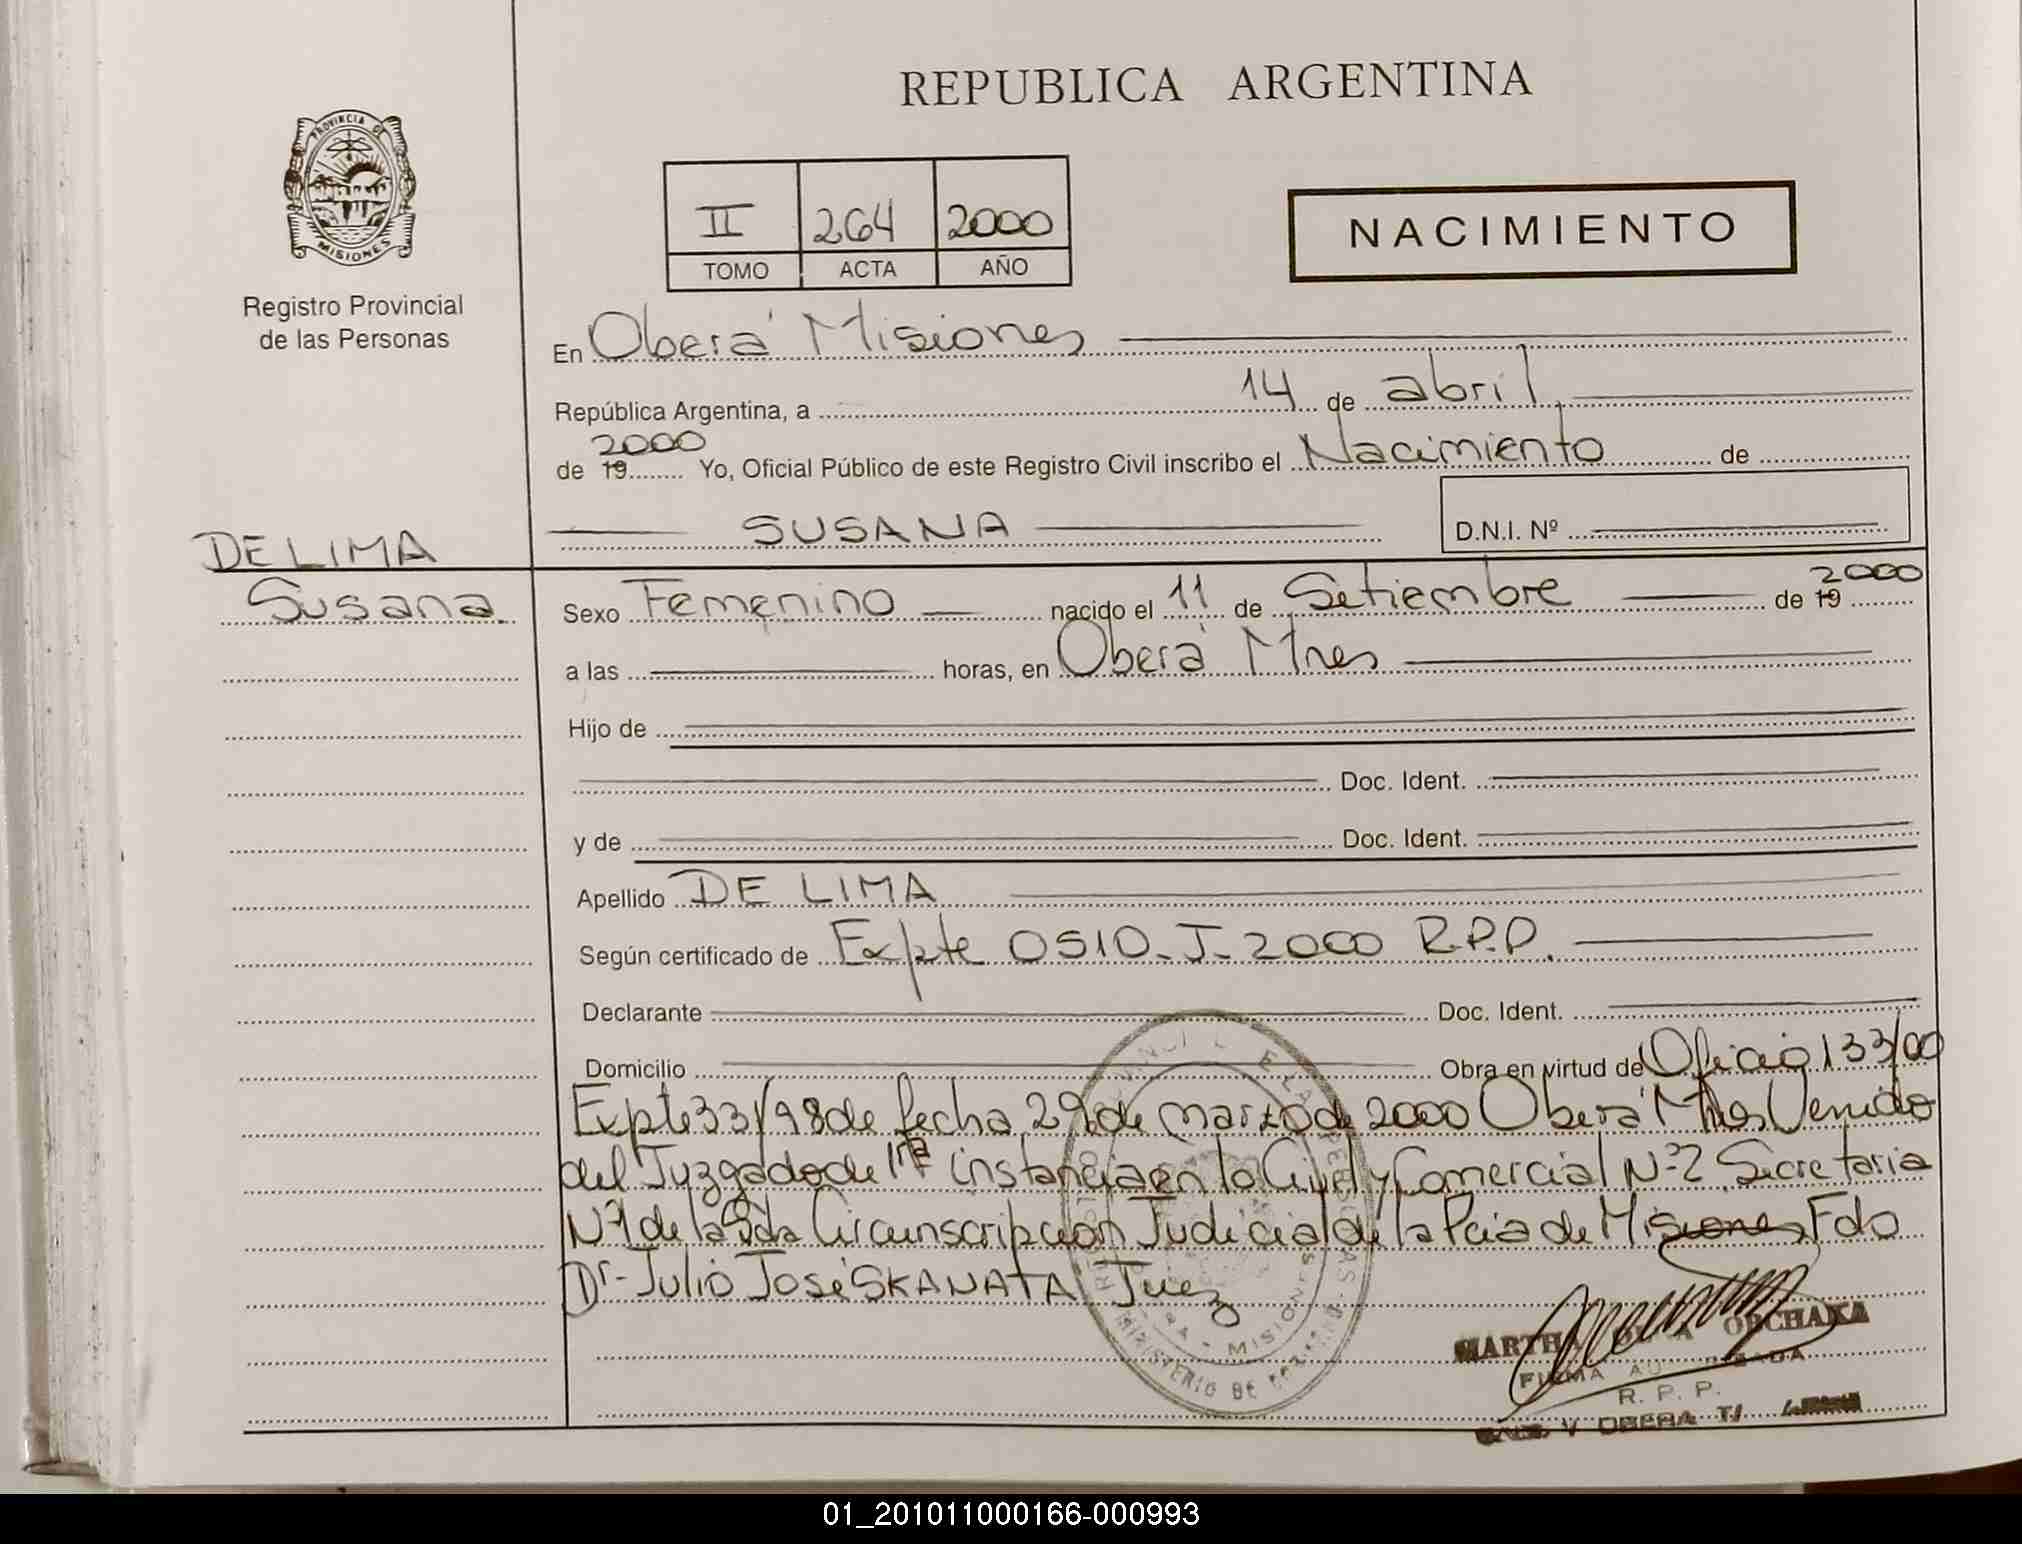 REPUBLICA ARGENTINA
PROVINCIA DE
MISIONES
Registro Provincial
de las Personas
II 264 2000
TOMO ACTA AÑO
NACIMIENTO
En Oberá Misiones
República Argentina, a 14 de abril
de 19 2000 Yo, Oficial Público de este Registro Civil inscribo el Nacimiento de
SUSANA D.N.I. Nº
DE LIMA
Susana
Sexo Femenino nacido el 11 de Setiembre de 19 2000
a las horas, en Oberá Mnes
Hijo de
Doc. Ident.
y de Doc. Ident.
Apellido DE LIMA
Según certificado de Expte 0510-J-2000 R.P.P.
Declarante Doc. Ident.
Domicilio Obra en virtud de Oficio 133/00
Expte 33/98 de fecha 29 de marzo de 2000 Oberá Mnes Venido
del Juzgado de 1ra instancia en lo Civil y Comercial Nº2 Secretaria
Nº1 de la 2da Circunscripcion Judicial de la Pcia de Misiones Fdo
Dr- Julio José SKANATA Juez
MINISTERIO DE
MISIONES
MARTHA ORCHAKA
FIRMA AUTORIZADA
R. P. P.
OBERA
01_201011000166-000993